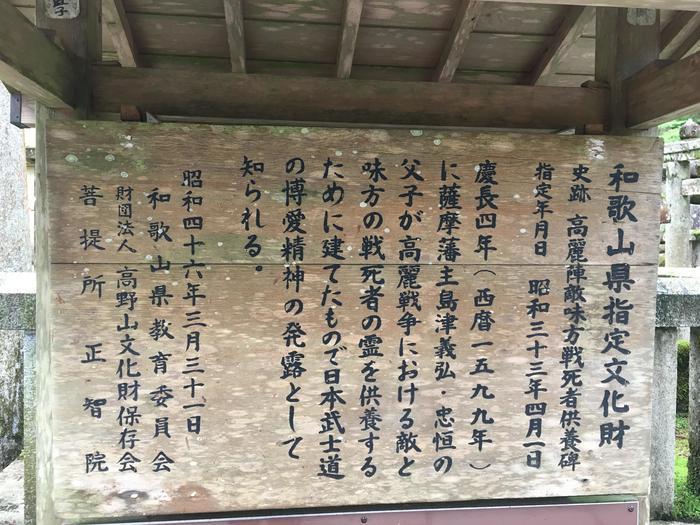 和歌山県指定文化財
史跡 高麗陣敵味方戦死者供養碑
指定年月日 昭和三十三年四月一日
慶長四年(西暦一五九九年)
に薩摩藩主島津義弘・忠恒の
父子が高麗戦争における敵と
味方の戦死者の霊を供養する
ために建てたもので日本武士道
の博愛精神の発露として
知られる。
昭和四十六年三月三十一日
和歌山県教育委員会
財団法人 高野山文化財保存会
菩提所 正智院